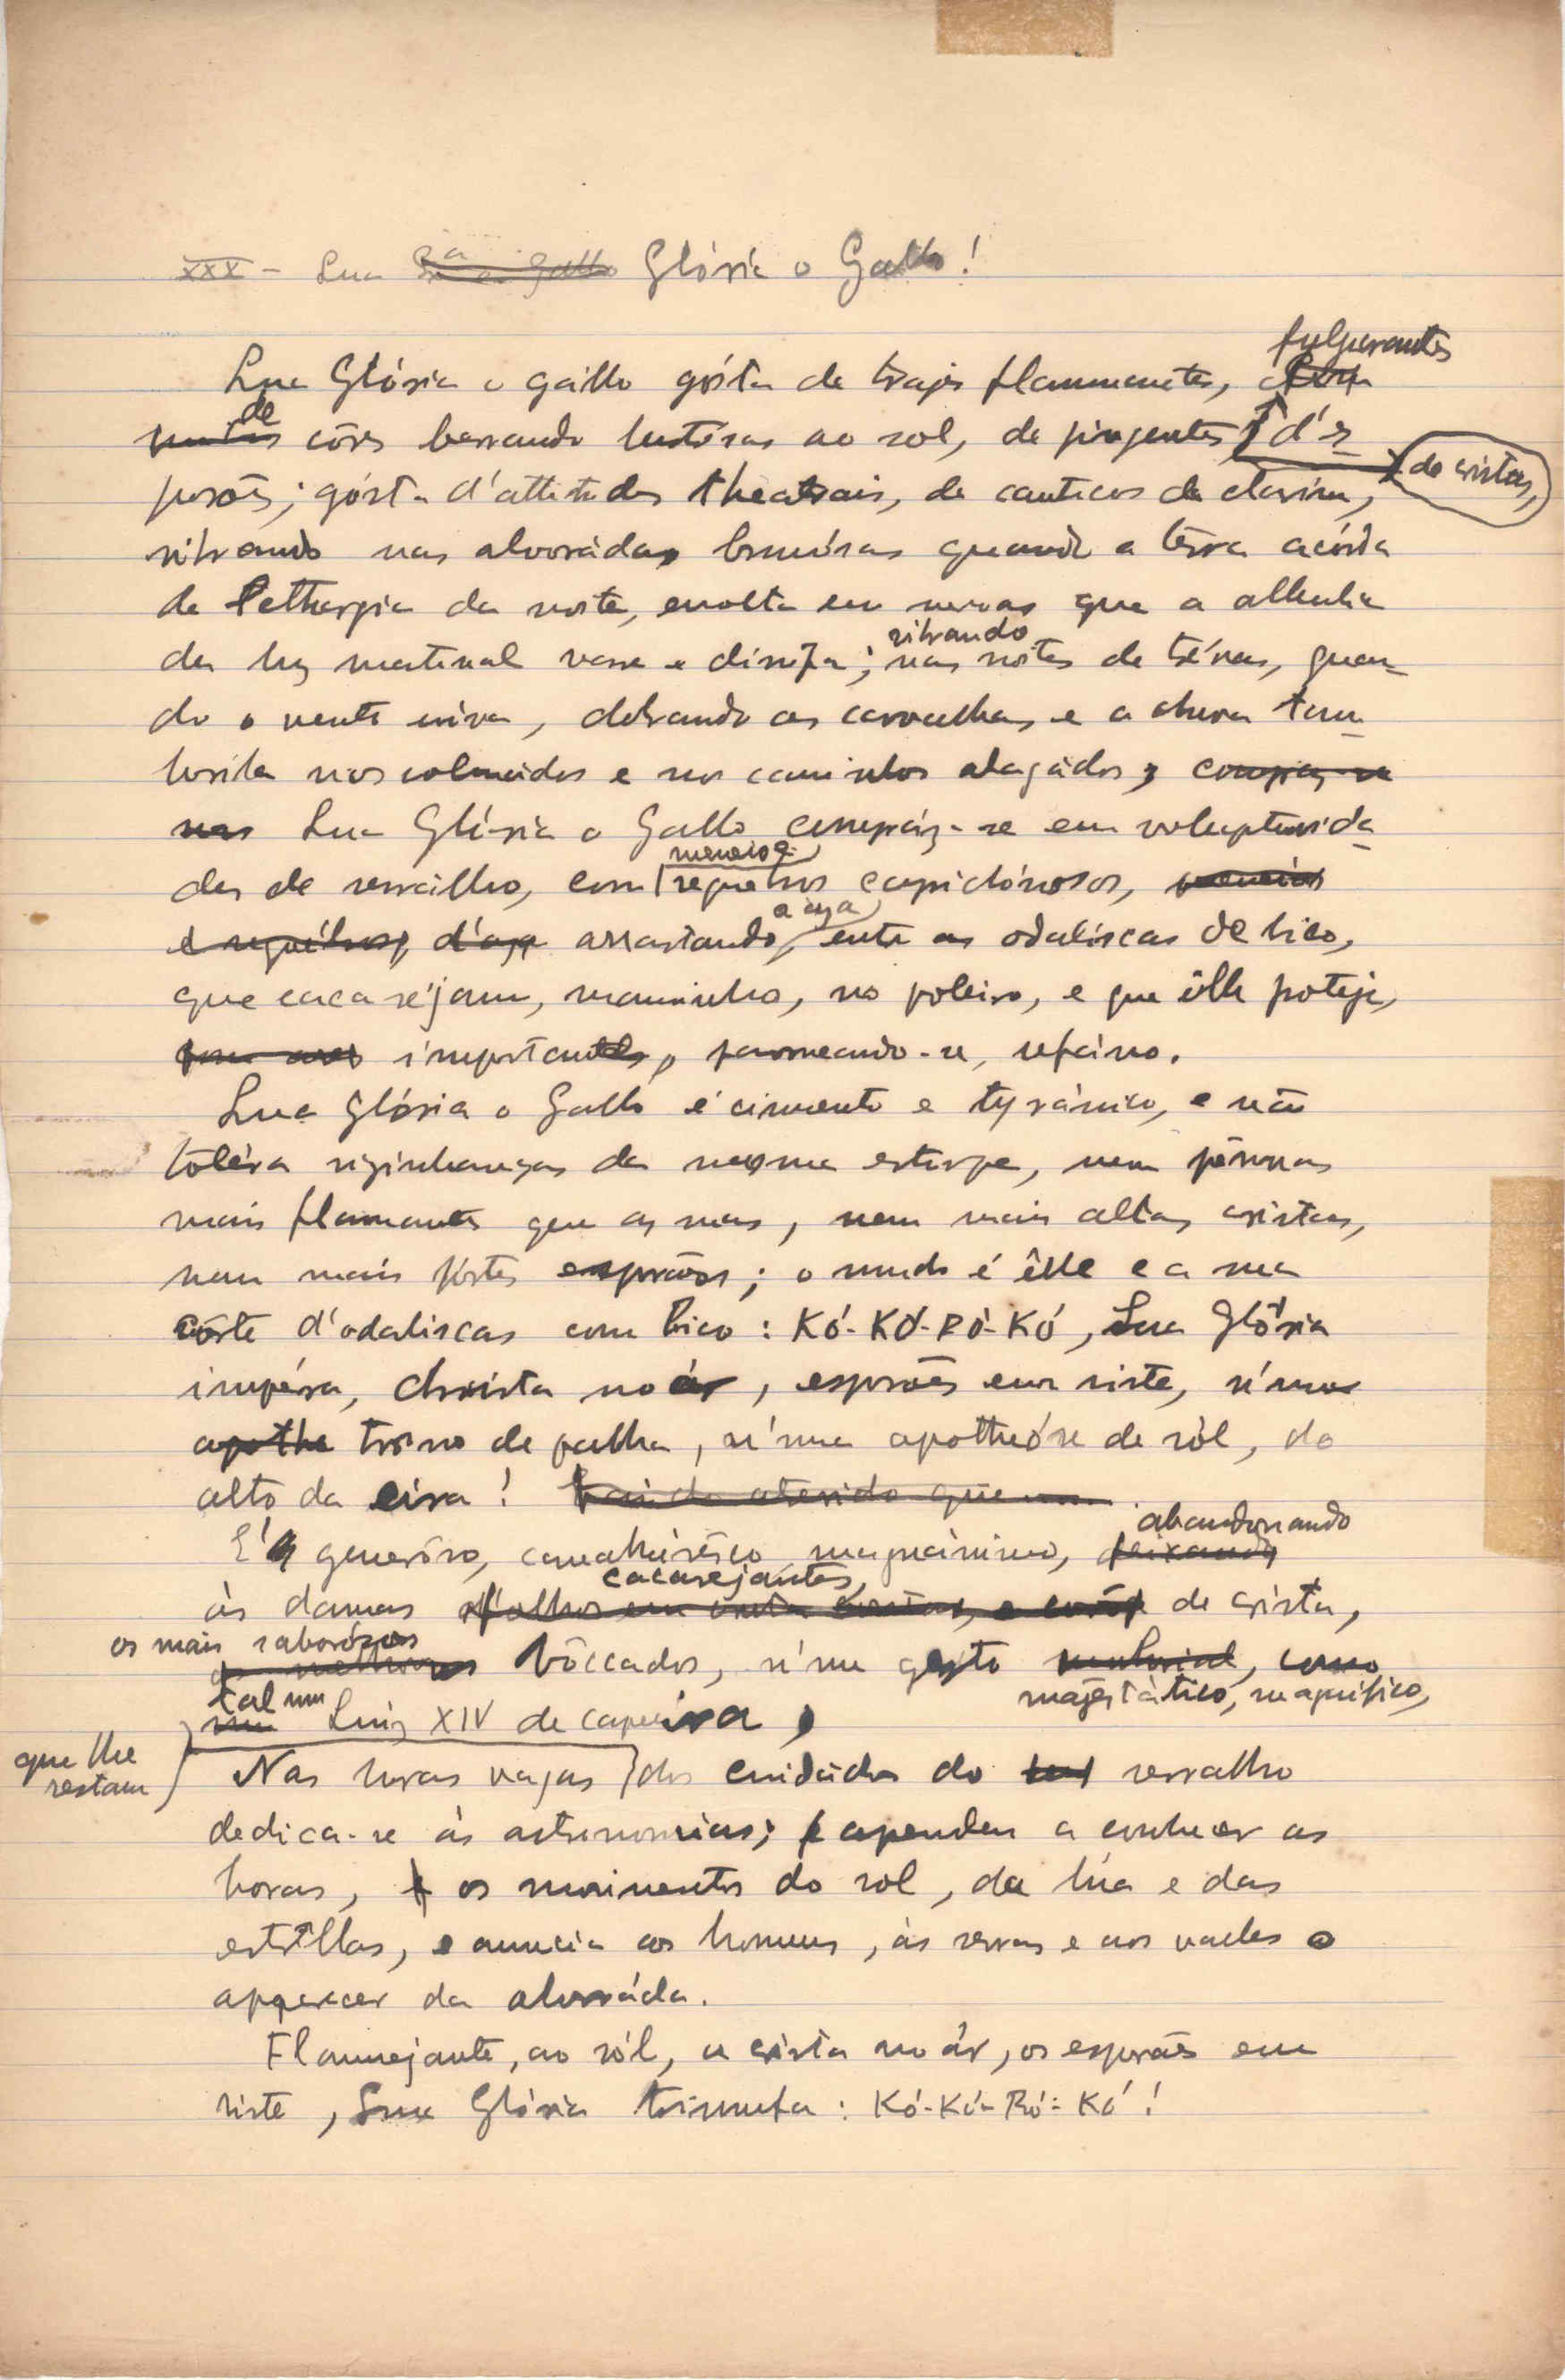 XXX - Sua Glória o Gallo!
fulgurantes
Sua Glória o gállo gósta de trajes flammantes,
de
côres berrando lustrósas ao sol, de pingentes d'es
de cristas,
porões; gósta d'attitudes theatrais, de canticos de clarim,
vibrando nas alvorádas brumósas quando a terra acórda
da lethargia da noite, envolta em nevoas que a
da luz matinal varre e dissipa; nas noites de trévas, quan-
vibrando
do o vento uiva, dobrando os carvalhos e a chuva tam-
borila nos colmados e nos caminhos alagádos, compraz-se
nas Sua Glória o Gallo compráz-se em voluptuosida-
des de serralho, com requebros capiciósos, meneios
meneios e
e requébros, d'asa arrastando, entre as odaliscas de bico,
a aza
que cacaréjam, mansinho, no poleiro, e que êlle proteje,
com ares importantes, pavoneando-se, ufáno.
Sua Glória o Gallo é ciumento e tyránico, e não
toléra vizinhanças da mesma estirpe, nem pênnas
mais flamantes que as suas, nem mais altas cristas,
nem mais fórtes esporões; o mundo é êlle e a sua
côrte d'odaliscas com bico: Kó-Kó-Ró-Kó, Sua Glória
impéra, christa no ár, esporões em riste, n'um
apothe trono de palha, n'uma apotheóse de sól, do
alto da eira!
abandonando
É generôso, cavalheirêsco, magnánimo, deixando
cacarejantes,
ás damas de crista,
os mais saborósos
os melhores bôccados, n'um gesto como
majestático, magnífico,
tal um
um Luiz XIV de capoeira,
que lhe
restam
Nas horas vagas dos cuidádos do serralho
dedica-se ás astronomias; aprendeu a conhecer as
horas, os movimentos do sol, da lúa e das
estrêllas, e anuncia aos homens, ás serras e aos vales o
apparecer da alvoráda.
Flammejante, ao sól, a crista no ár, os esporões em
riste, Sua Glória triumfa: Kó-Kó-Ró-Kó!